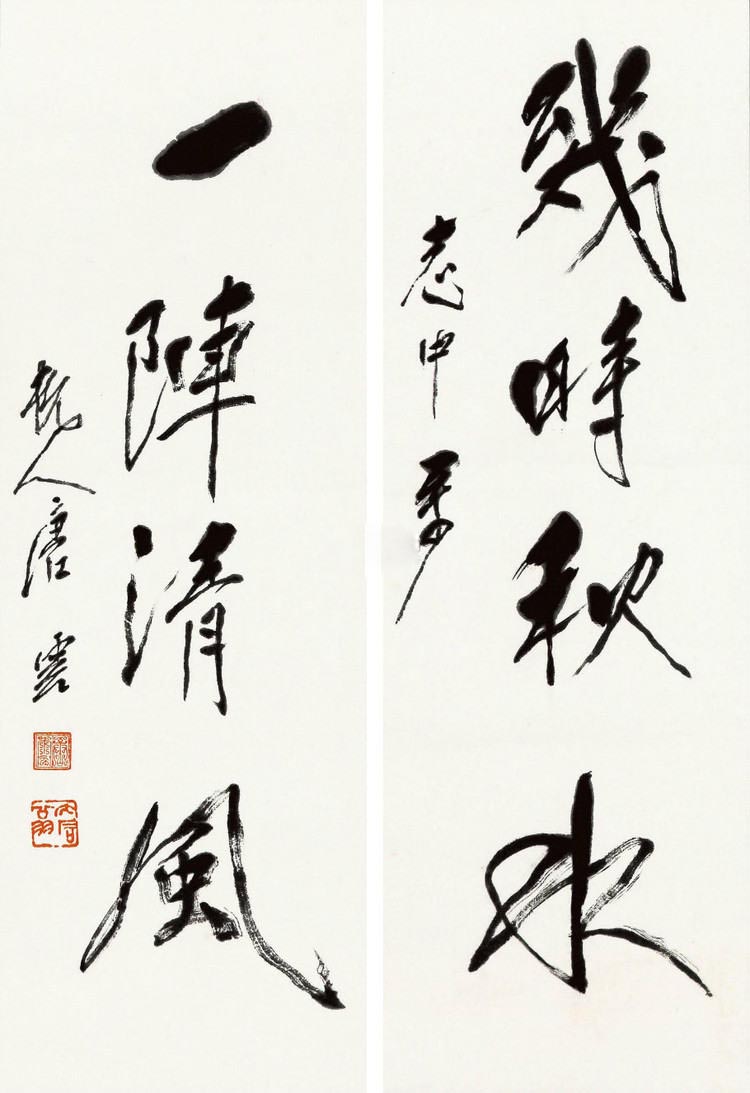 幾時秋水
志申
一陣清風
杭人唐雲